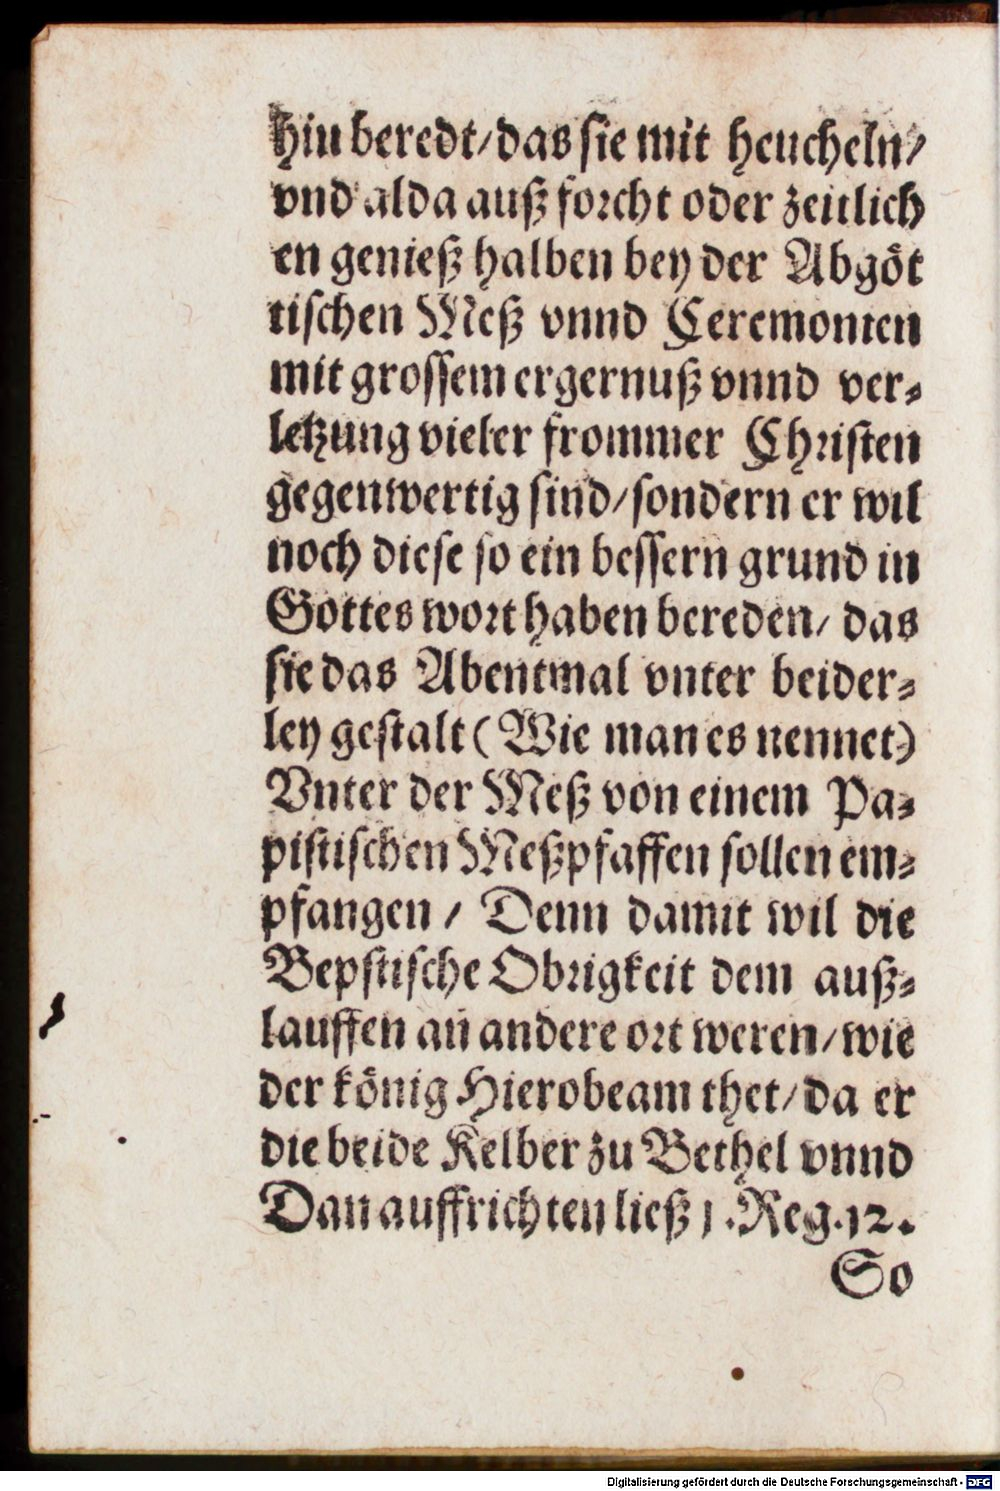 hin beredt/das sie mit heucheln/
vnd alda auß forcht oder zeitlich
en genieß halben bey der Abgöt
tischen Meß vnnd Ceremonien
mit grossem ergernuß vnnd ver⸗
letzung vieler frommer Christen
gegenwertig sind/sondern er wil
noch diese so ein bessern grund in
Gottes wort haben bereden/ das
sie das Abentmal vnter beider⸗
ley gestalt (Wie man es nennet)
Vnter der Meß von einem Pa⸗
pistischen Meßpfaffen sollen em⸗
pfangen / Denn damit wil die
Bepstische Obrigkeit dem auß⸗
lauffen an andere ort weren/wie
der könig Hierobeam thet/da er
die beide Kelber zu Bethel vnnd
Dan auffrichten ließ 1.Reg.12.
So
Digitalisierung gefördert durch die Deutsche Forschungsgemeinschaft - DFG